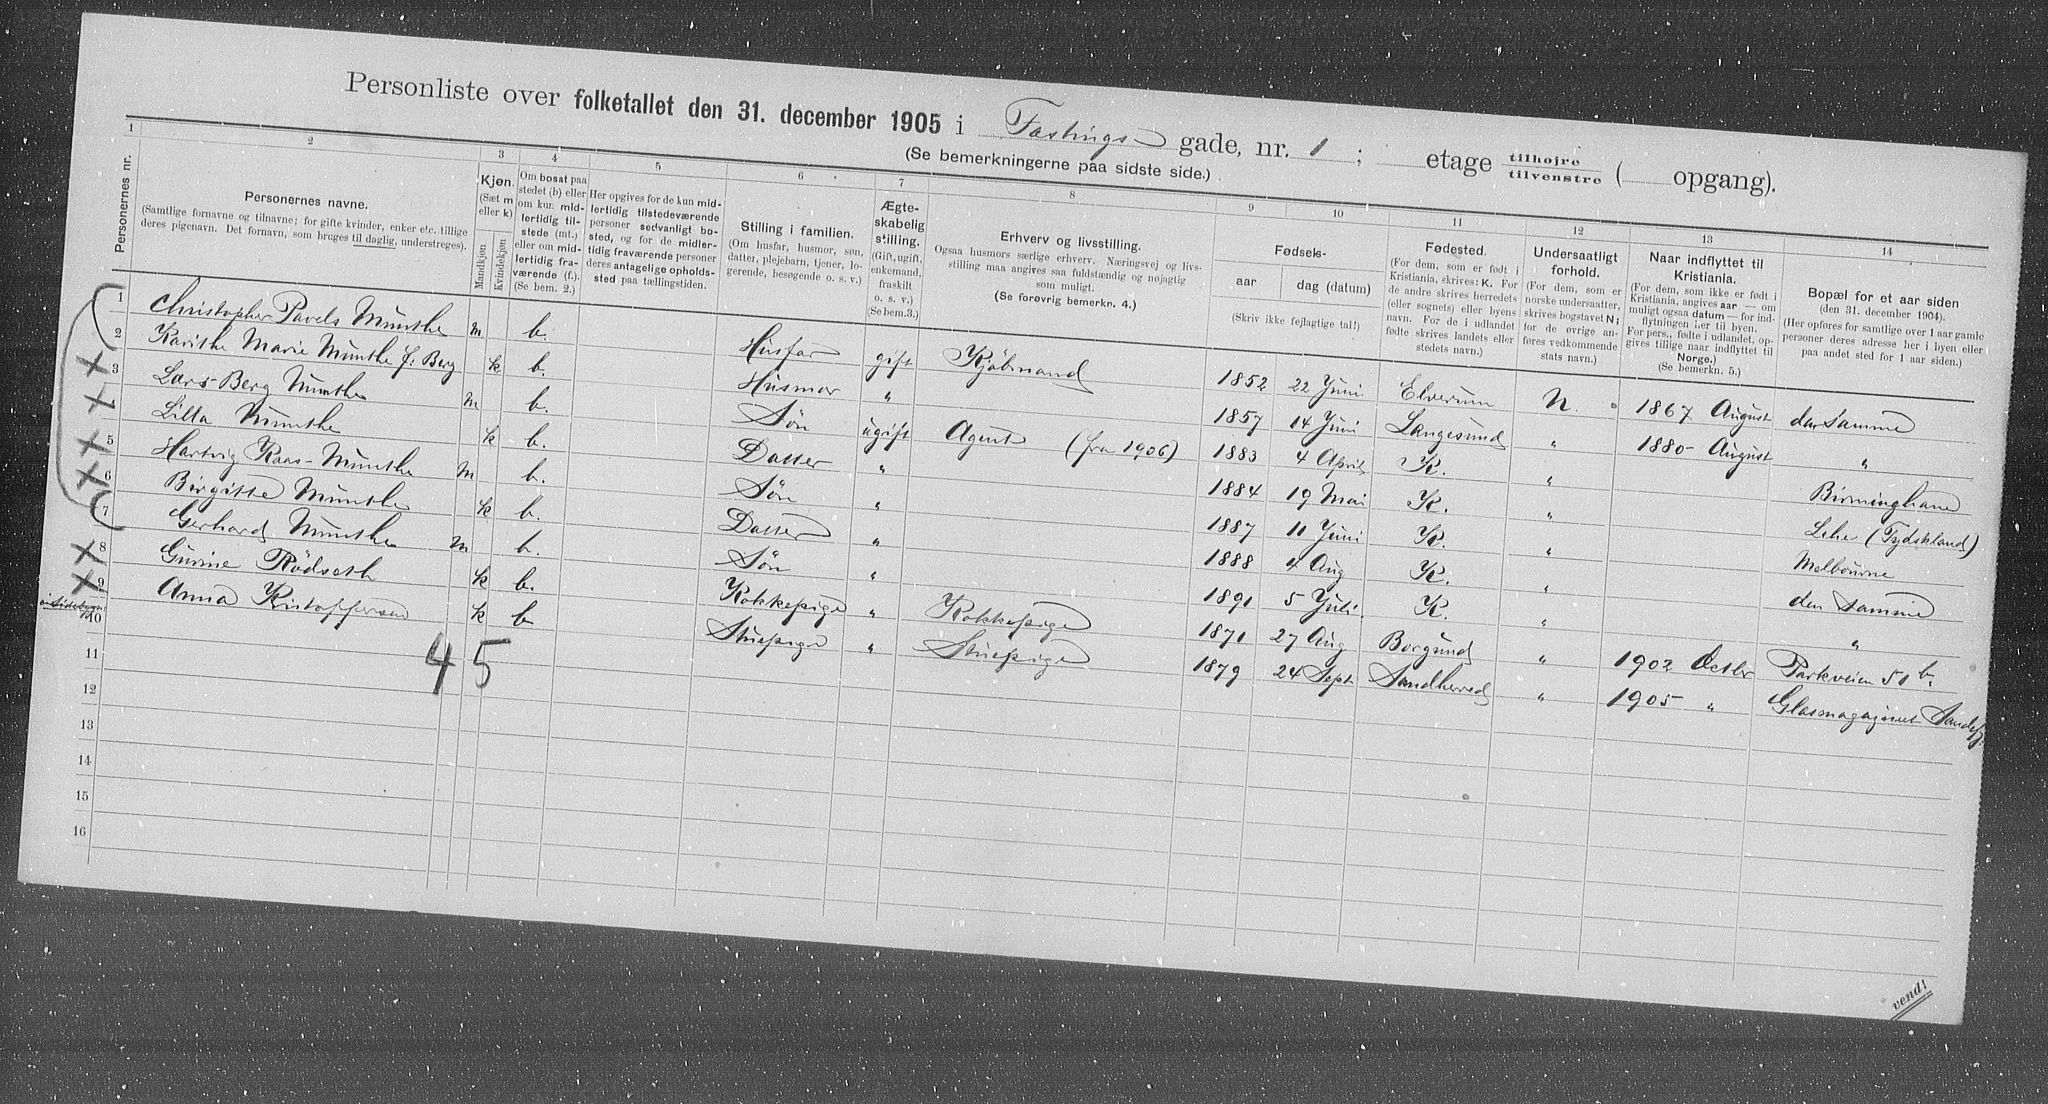 Personliste over folketallet den 31. december 1905 i Fastings gade, nr. 1 ; etage tilhøjre tilvenstre ( opgang).
(Se bemerkningerne paa sidste side.)
1 2 3 4 5 6 7 8 9 10 11 12 13 14
Personernes nr.
Personernes navne.
(Samtlige fornavne og tilnavne; for gifte kvinder, enker etc. tillige
deres pigenavn. Det fornavn, som bruges til daglig, understreges).
Kjøn.
(Sæt m
eller k)
Mandkjøn
Kvindekjøn
Om bosat paa
stedet (b) eller
om kun mid-
lertidig til-
stede (mt.)
eller om mid-
lertidig fra-
værende (f.).
(Se bem. 2.)
Her opgives for de kun mid-
lertidig tilstedeværende
personer sedvanligt bo-
sted, og for de midler-
tidig fraværende personer
deres antagelige opholds-
sted paa tællingstiden.
Stilling i familien.
(Om husfar, husmor, søn,
datter, plejebarn, tjener, lo-
gerende, besøgende o. s. v.)
Ægte-
skabelig
stilling.
(Gift, ugift,
enkemand,
fraskilt
o. s. v.)
(Se bem.3.)
Erhverv og livsstilling.
Ogsaa husmors særlige erhverv. Næringsvej og livs-
stilling maa angives saa fuldstændig og nøjagtig
som muligt.
(Se forøvrig bemerkn. 4.)
Fødsels-
aar
dag (datum)
(Skriv ikke fejlagtige tal!)
Fødested.
(For dem, som er født i
Kristiania, skrives: K. For
de andre skrives herredets
(eller sognets) eller byens
navn. For de i udlandet
fødte skrives landets eller
stedets navn.)
Undersaatligt
forhold.
(For dem, som er
norske undersaatter,
skrives bogstavet N;
for de øvrige an-
føres vedkommende
stats navn.)
Naar indflyttet til
Kristiania.
(For dem, som ikke er født i
Kristiania, angives aar — om
muligt ogsaa datum — for ind-
flytningen her til byen.
For pers., fødte i udlandet, op-
gives tillige naar indflyttet til
Norge.)
(Se bemerkn. 5.)
Bopæl for et aar siden
(den 31. december 1904).
(Her opføres for samtlige over 1 aar gamle
personer deres adresse her i byen eller
paa andet sted for 1 aar siden.)
1 Christopher Pavels Munthe m b. Husfar gift Kjøbmand 1852 22 Juni Elverum N. 1867 August den Samme
2 Karithe Marie Munthe f: Berg k b. Husmor " 1857 14 Juni Langesund " 1880 August "
3 Lars Berg Munthe m b. Søn ugift Agent (fra 1906) 1883 4 April K. " Birmingham
4 Lilla Munthe k b. Datter " 1884 19 Mai K. " Lehe (Tydskland)
5 Hartvig Kaas Munthe m b. Søn " 1887 11 Juni K. " Melbourne
6 Birgitte Munthe k b. Datter " 1888 4 Aug K. " den Samme
7 Gerhard Munthe m b. Søn " 1891 5 Juli K. " "
8 Gurine Rödseth k b. Kokkepige " Kokkepige 1871 27 Aug Borgund " 1902 Octbr Parkveien 51 b.
9 Anna Kristoffersen k b Stuepige " Stuepige 1879 24 Sept. Sandherred " 1905 " Glasmagazinet
10
11 4 5
12
13
14
15
16
vend!